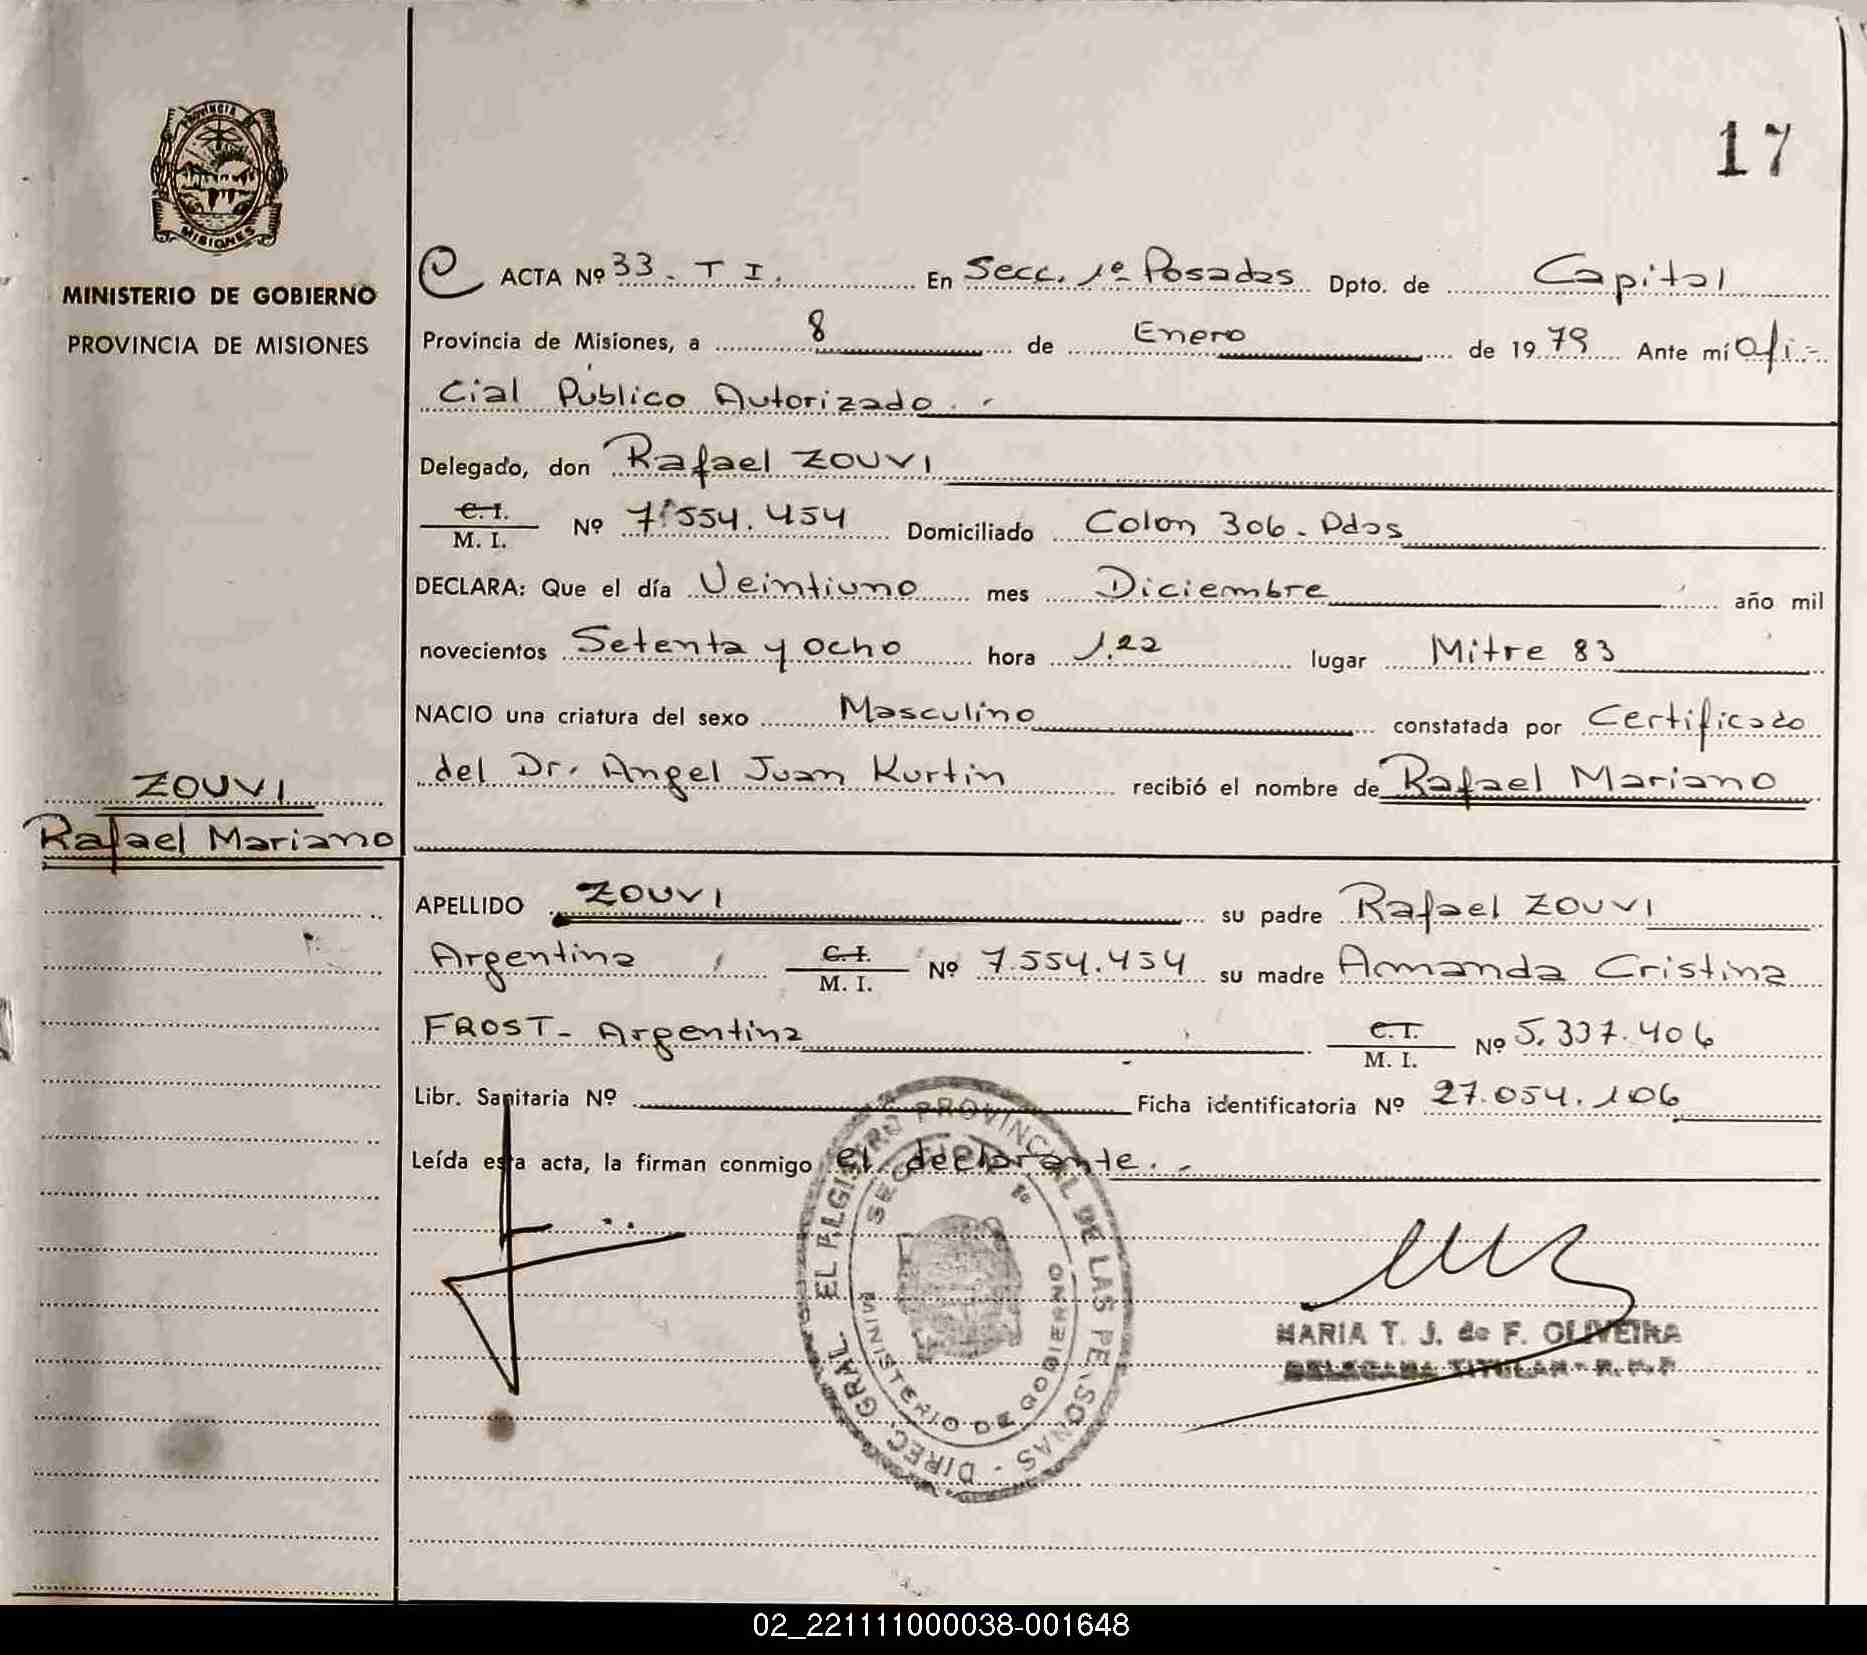 17
Provincia
MISIONES
MINISTERIO DE GOBIERNO
PROVINCIA DE MISIONES
ZOUVI
Rafael Mariano
ACTA Nº 33. T I. En Secc. 1º Posadas Dpto. de Capital
Provincia de Misiones, a 8 de Enero de 1979 Ante mí Ofi-
cial Público Autorizado.-
Delegado, don Rafael ZOUVI
C. I.
M. I. Nº 7.554.454 Domiciliado Colon 306. Pdas
DECLARA: Que el día Veintiuno mes Diciembre año mil
novecientos Setenta y ocho hora 1.22 lugar Mitre 83
NACIO una criatura del sexo Masculino constatada por Certificado
del Dr. Angel Juan Kurtin recibió el nombre de Rafael Mariano
APELLIDO ZOUVI su padre Rafael ZOUVI
Argentina C. I.
M. I. Nº 7.554.454 su madre Amanda Cristina
FROST- Argentina C. I.
M. I. Nº 5.337.406
Libr. Sanitaria Nº Ficha identificatoria Nº 27.054.106
Leída esta acta, la firman conmigo el declarante.-
DIREC. GRAL. EL REGISTRO PROVINCIAL DE LAS PERSONAS -
SECCION 1º
MINISTERIO DE GOBIERNO
MARIA T. J. de F. OLIVEIRA
DELEGADA TITULAR - R. P. P.
02_221111000038-001648